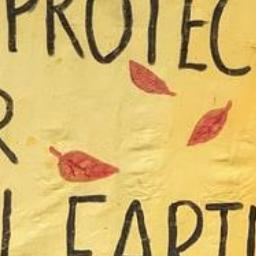 PROTEC
R
EARTH